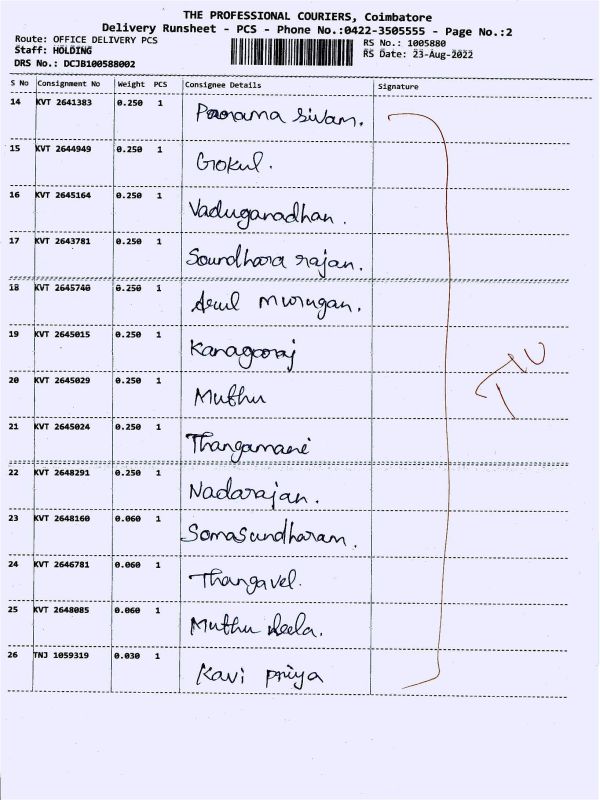 THE PROFESSIONAL COURIERS, Coimbatore
Delivery Runsheet - PCS - Phone No.:0422-3505555 - Page No.:2
Route: OFFICE DELIVERY PCS
RS No.: 1005880
Staff: HOLDING
RS Date: 23-Aug-2022
DRS No.: DCJB100588002
S No Consignment No Weight PCS Consignee Details Signature
14 KVT 2641383 0.250 1 Parama Sivam.
15 KVT 2644949 0.250 1 Gokul.
16 KVT 2645164 0.250 1 Vaduganadhan.
17 KVT 2643781 0.250 1 Soundhara rajan.
18 KVT 2645740 0.250 1 Arul Murugan.
19 KVT 2645015 0.250 1 Kanagaraj
20 KVT 2645029 0.250 1 Muthu
21 KVT 2645024 0.250 1 Thangamani
22 KVT 2648291 0.250 1 Nadarajan.
23 KVT 2648160 0.060 1 Somasundharam.
24 KVT 2646781 0.060 1 Thangavel.
25 KVT 2648085 0.060 1 Muthu
26 TNJ 1059319 0.030 1 Kavi Priya